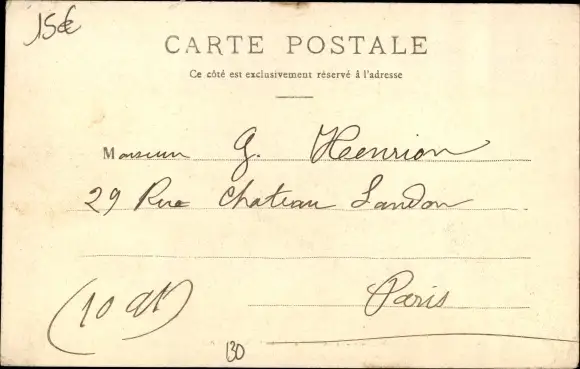 15€
CARTE POSTALE
Ce côté est exclusivement réservé à l'adresse
Monsieur G. Henrion
29 Rue Chateau Landon
Paris
(10 at)
130